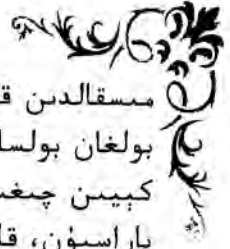 مىسقالدىن ق
بولغان بولسا
كېيىن چىغى
پاراسىۋن، قا